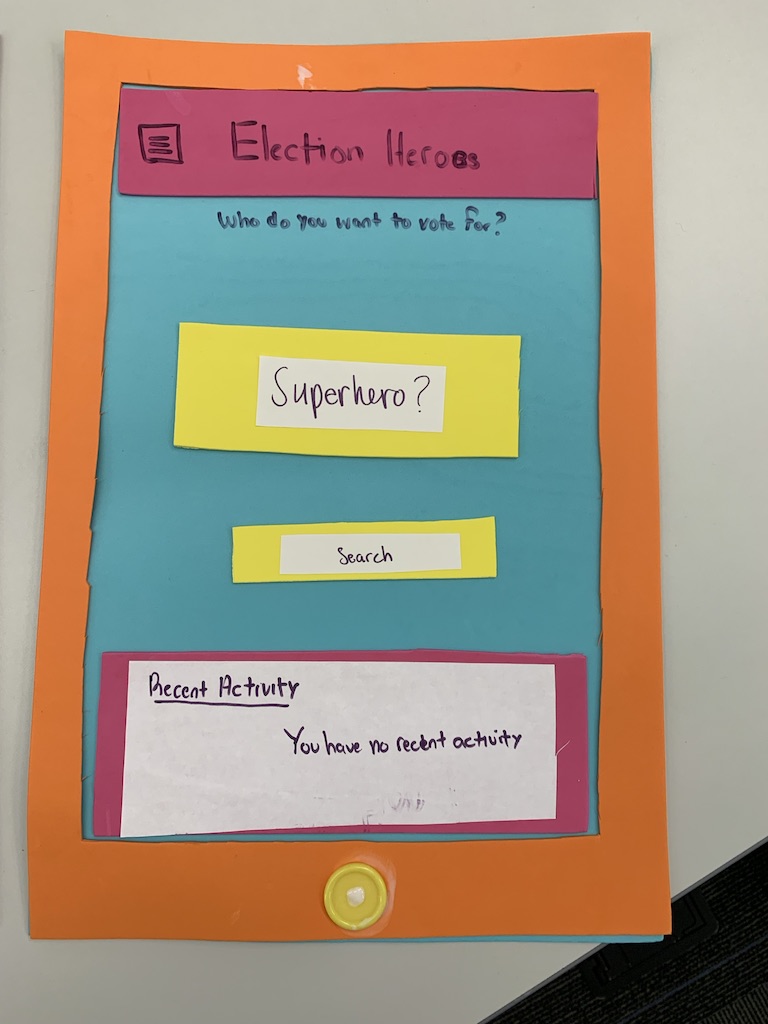 Election Heroes
Who do you want to vote for?
Superhero?
Search
Recent Activity
You have no recent activity